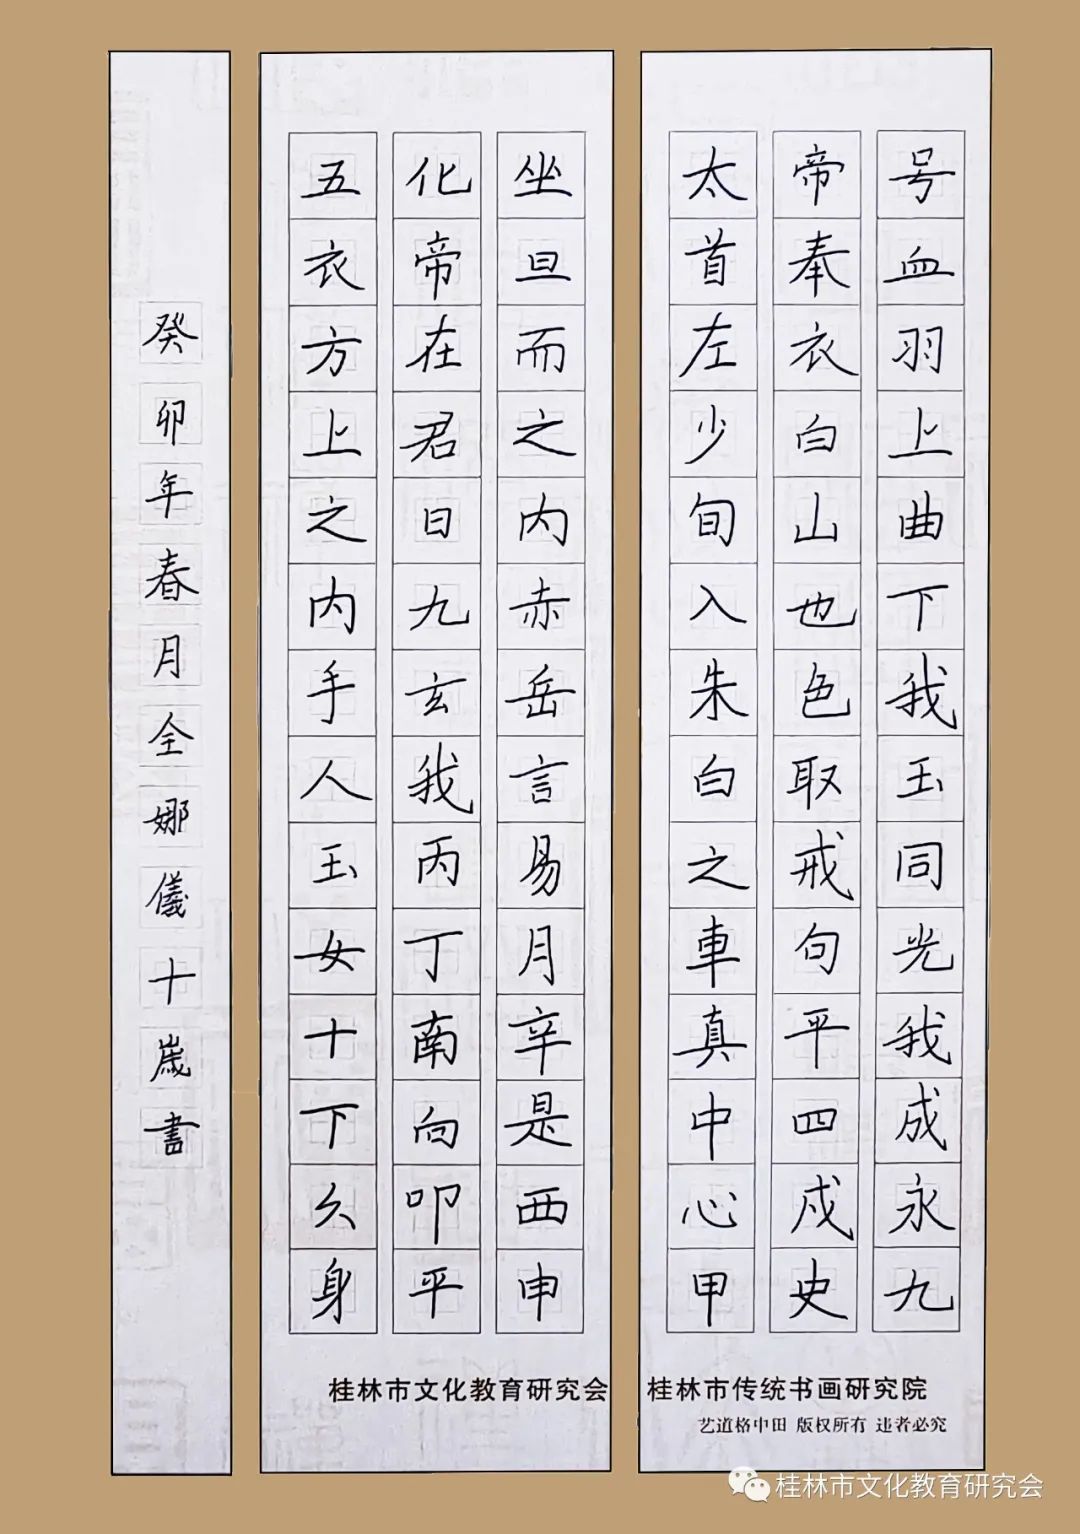 号血羽上曲下我玉同光我成永九
帝奉衣白山也色取戒句平四戍史
太首左少旬入朱白之車真中心甲
坐旦而之内赤岳言易月辛是西申
化帝在君日九玄我丙丁南向叩平
五衣方上之内手人玉女十下久身
癸卯年春月全娜儀十歲書
桂林市文化教育研究会
桂林市传统书画研究院
艺道格中田 版权所有 违者必究
桂林市文化教育研究会